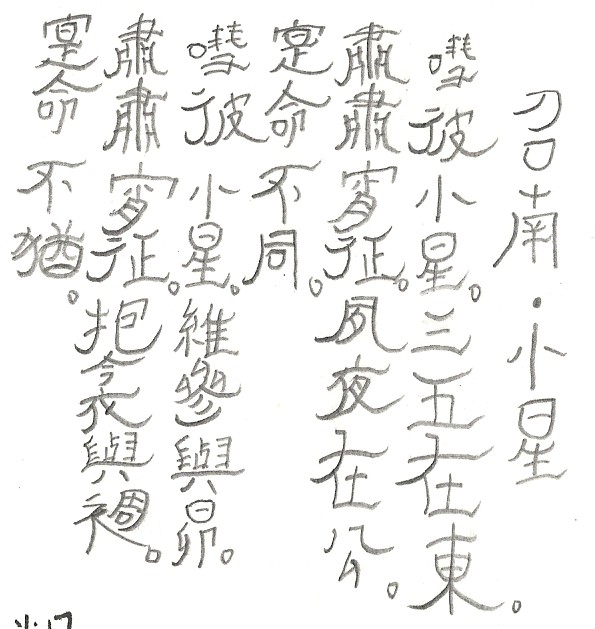 召南·小星
嘒彼小星。三五在東。
肅肅宵征。夙夜在公。
寔命不同。
嘒彼小星。維參與昴。
肅肅宵征。抱衾與裯。
寔命不猶。